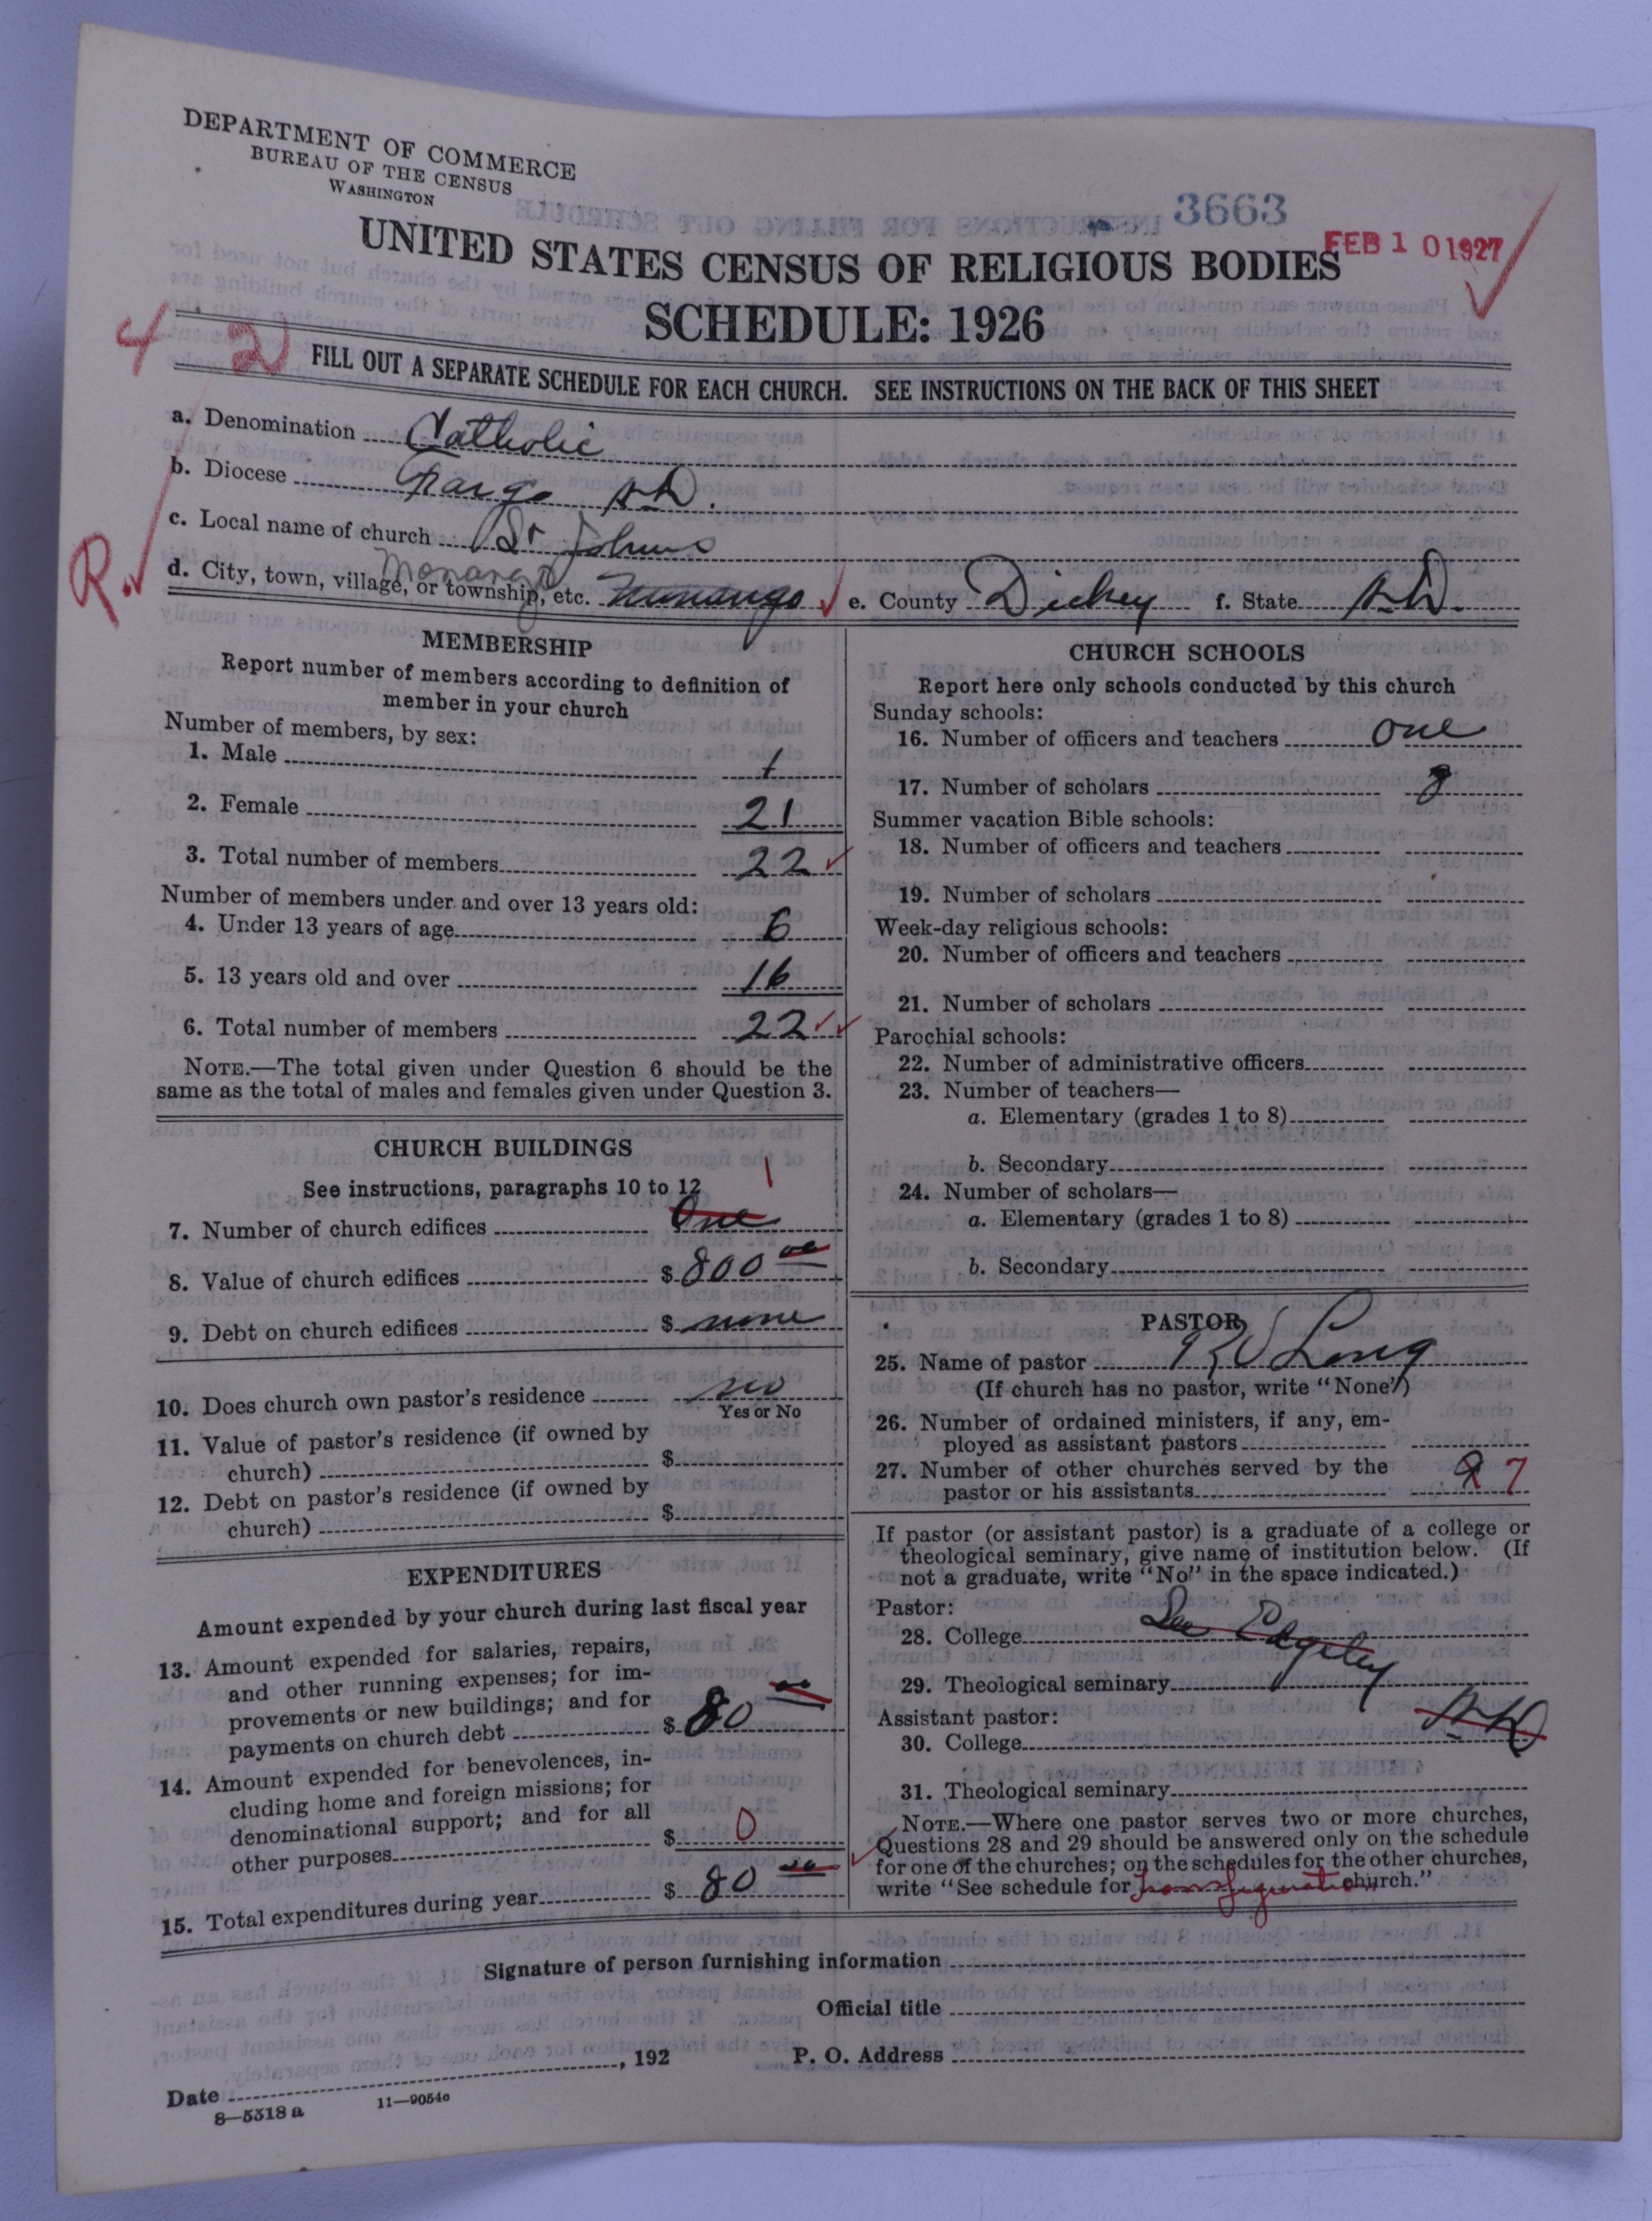 DEPARTMENT OF COMMERCE
BUREAU OF THE CENSUS
WASHINGTON
3663
FEB 10 1927
UNITED STATES CENSUS OF RELIGIOUS BODIES
SCHEDULE: 1926
4 2
FILL OUT A SEPARATE SCHEDULE FOR EACH CHURCH. SEE INSTRUCTIONS ON THE BACK OF THIS SHEET
a. Denomination Catholic
b. Diocese Fargo N.D.
c. Local name of church St Johns
R.
Monango
d. City, town, village, or township, etc. e. County Dickey f. State N.D.
MEMBERSHIP
Report number of members according to definition of
member in your church
Number of members, by sex:
1. Male 1
2. Female 21
3. Total number of members 22
Number of members under and over 13 years old:
4. Under 13 years of age 6
5. 13 years old and over 16
6. Total number of members 22
NOTE.—The total given under Question 6 should be the
same as the total of males and females given under Question 3.
CHURCH BUILDINGS
See instructions, paragraphs 10 to 12
1
7. Number of church edifices One
8. Value of church edifices $ 800 00
9. Debt on church edifices $ none
10. Does church own pastor's residence no
Yes or No
11. Value of pastor's residence (if owned by
church) $
12. Debt on pastor's residence (if owned by
church) $
EXPENDITURES
Amount expended by your church during last fiscal year
13. Amount expended for salaries, repairs,
and other running expenses; for im-
provements or new buildings; and for
payments on church debt $ 80 00
14. Amount expended for benevolences, in-
cluding home and foreign missions; for
denominational support; and for all
other purposes $ 0
15. Total expenditures during year $ 80 00
CHURCH SCHOOLS
Report here only schools conducted by this church
Sunday schools:
16. Number of officers and teachers one
17. Number of scholars 8
Summer vacation Bible schools:
18. Number of officers and teachers
19. Number of scholars
Week-day religious schools:
20. Number of officers and teachers
21. Number of scholars
Parochial schools:
22. Number of administrative officers
23. Number of teachers—
a. Elementary (grades 1 to 8)
b. Secondary
24. Number of scholars—
a. Elementary (grades 1 to 8)
b. Secondary
PASTOR
25. Name of pastor Long
(If church has no pastor, write "None")
26. Number of ordained ministers, if any, em-
ployed as assistant pastors
27. Number of other churches served by the
pastor or his assistants 7
If pastor (or assistant pastor) is a graduate of a college or
theological seminary, give name of institution below. (If
not a graduate, write "No" in the space indicated.)
Pastor:
28. College See Edgeley
29. Theological seminary
Assistant pastor: N.D.
30. College
31. Theological seminary
NOTE.—Where one pastor serves two or more churches,
Questions 28 and 29 should be answered only on the schedule
for one of the churches; on the schedules for the other churches,
write "See schedule for Transfiguration church."
Signature of person furnishing information
Official title
Date , 192 P. O. Address
8—5518 a 11—9054c